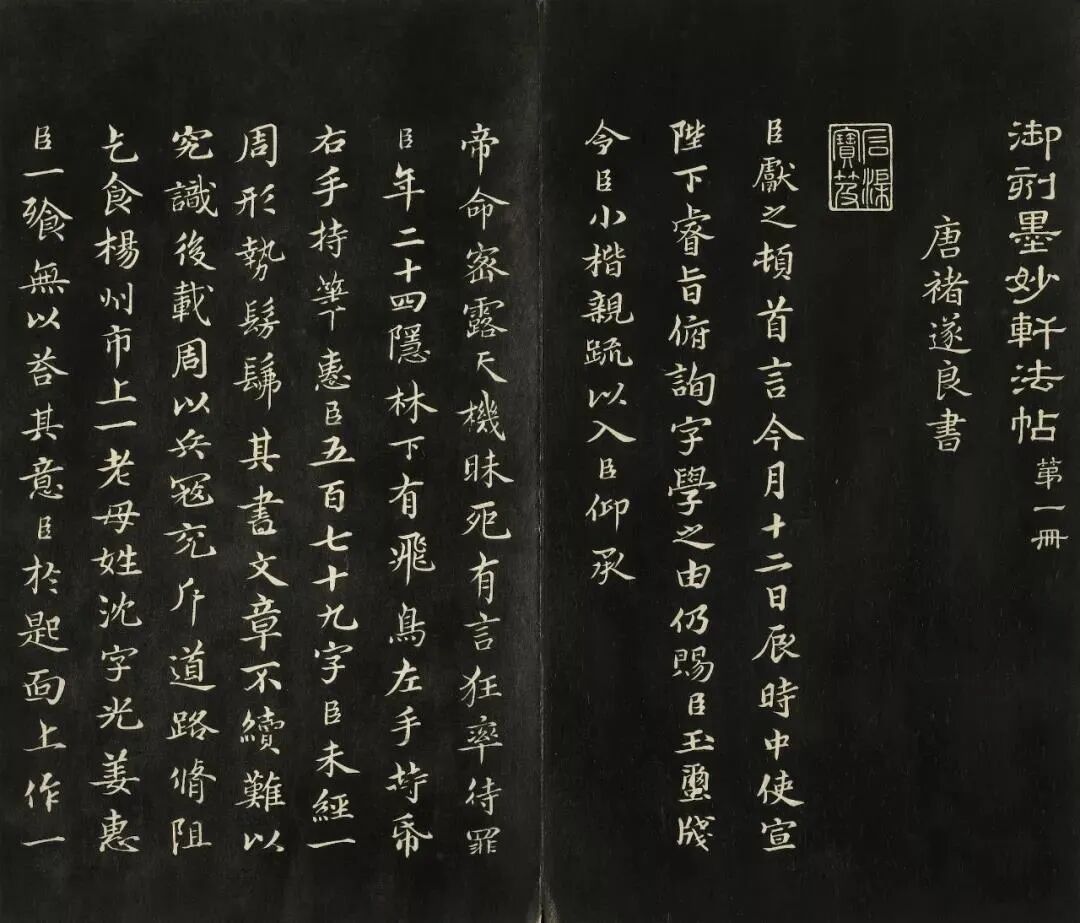 御刻墨妙軒法帖 第一冊
唐褚遂良書
石渠寶笈
臣獻之頓首言今月十二日辰時中使宣
陛下睿旨俯詢字學之由仍賜臣玉璽牋
令臣小楷親疏以入臣仰承
帝命密露天機昧死有言狂率待罪
臣年二十四隱林下有飛鳥左手持帋
右手持筆惠臣五百七十九字臣未經一
周形勢髣髴其書文章不續難以
究識後載周以兵寇充斥道路脩阻
乞食楊州市上一老母姓沈字光姜惠
臣一飱無以荅其意臣於是面上作一